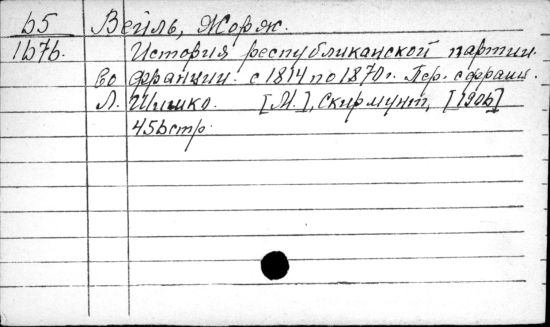 b5 Вейль, Жорж.
1b7b. История республиканской партии
во Франции. с 1814 по 1870 г. Пер. с франц.
Л. Шишко. [М.], Скирмунт, [190b]
45b стр.